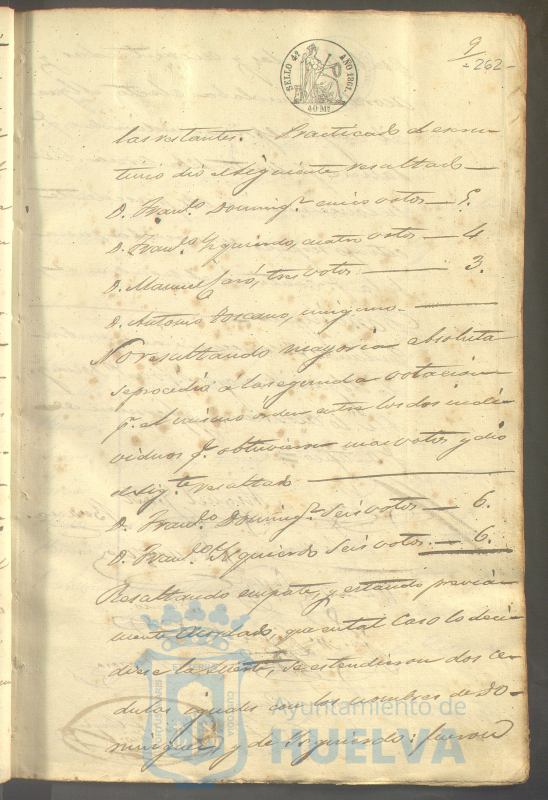 9
-262-
SELLO 4º AÑO 1861.
40 Ms
las restantes. Practicado el escru-
tinio dió el siguiente resultado
D. Franco. Domingz. cinco votos — 5.
D. Franco. Yzquierdo, cuatro votos — 4
D. Manuel Caró, tres votos — 3.
D. Antonio Toscano, ninguno —
No resultando mayoria absoluta
se procedió a la segunda votacion
pr. el mismo orden entre los dos indi-
viduos q. obtuvieron mas votos y dió
el sigte. resultado
D. Franco. Domingz. Seis votos — 6.
D. Franco. Yzquierdo Seis votos. — 6.
Resultando empate, y estando previa-
mente acordado, que en tal caso lo deci-
diese la suerte, se estendieron dos ce-
dulas iguales con los nombres de Do-
minguez y de Yzquierdo: fueron
Ayuntamiento de
HUELVA